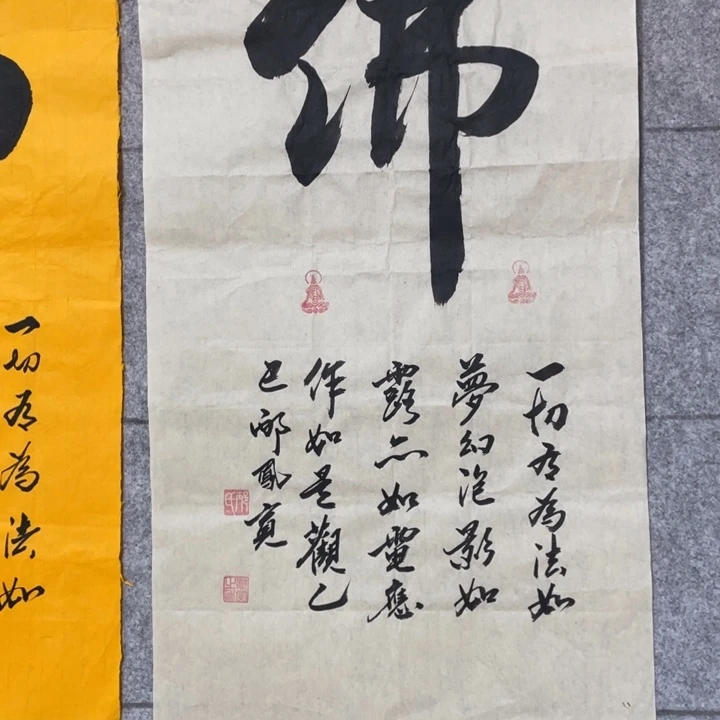 佛
一切有為法如
夢幻泡影如
露亦如電應
作如是觀乙
巳邴鳳寬
一切有為法如